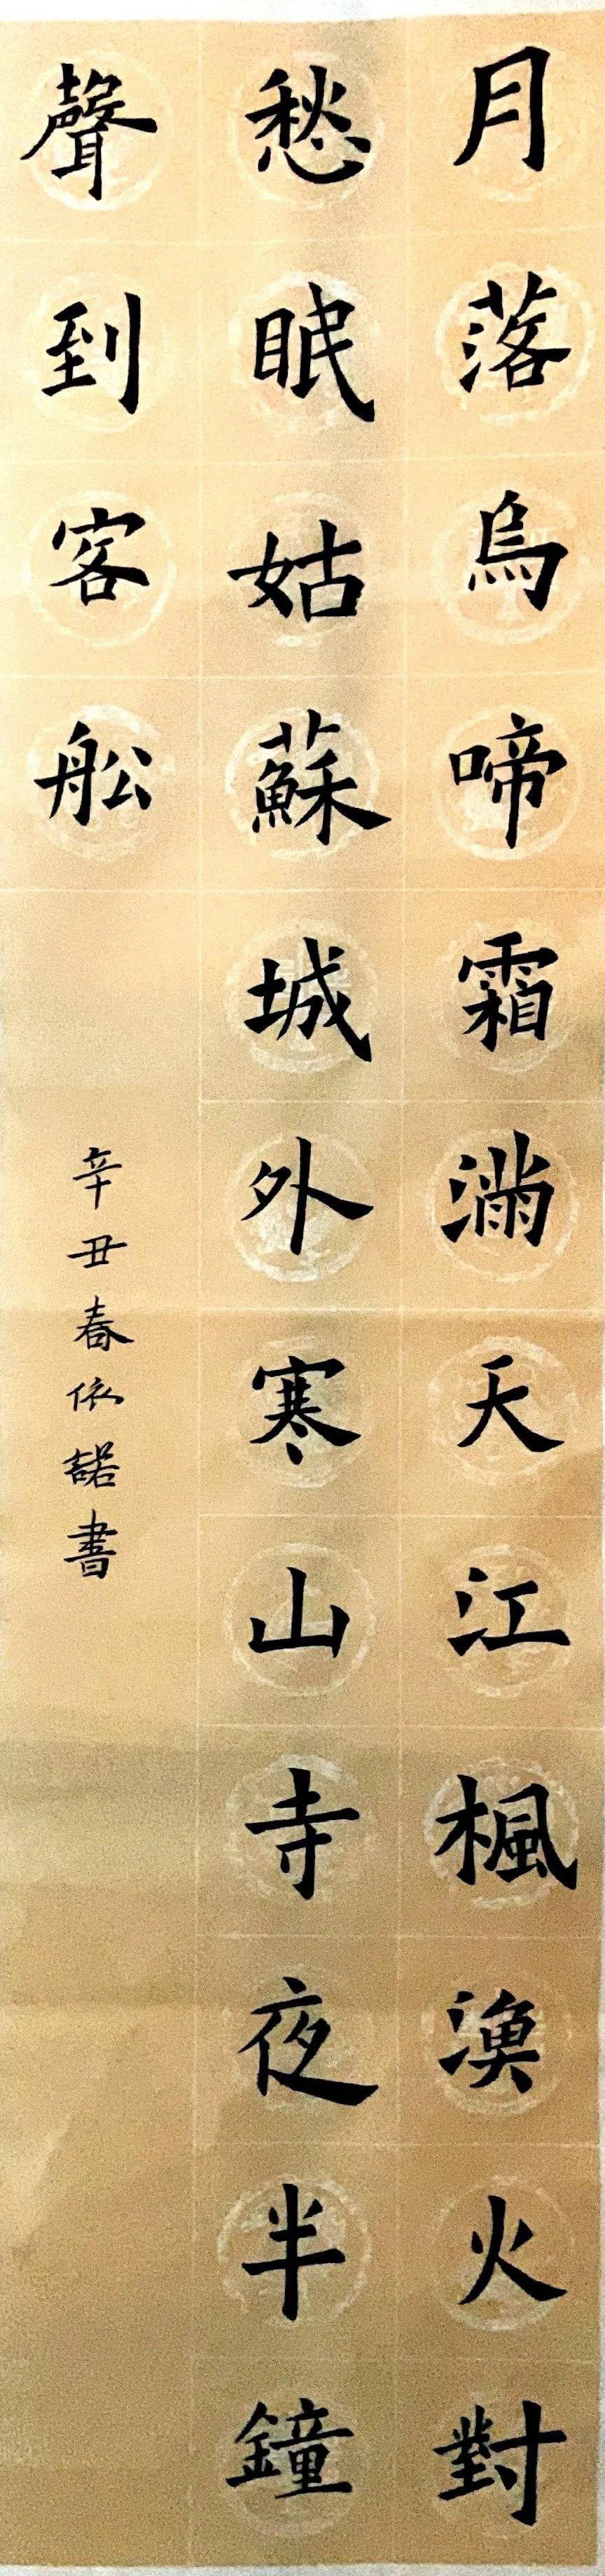 月落烏啼霜滿天江楓漁火對
愁眠姑蘇城外寒山寺夜半鐘
聲到客舩
辛丑春依諾書